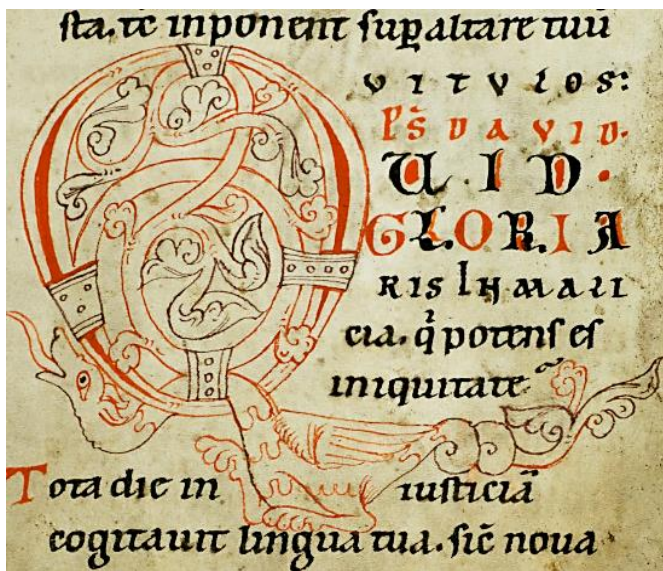 sta. tc inponent sup altare tuū
vitvlos:
PS DAVID.
QUID
GLORIA
RIS IN MALI
cia. q̄ potens es
iniquitate
Tota die in iusticiā
cogitauit lingua tua. sic̄ noua